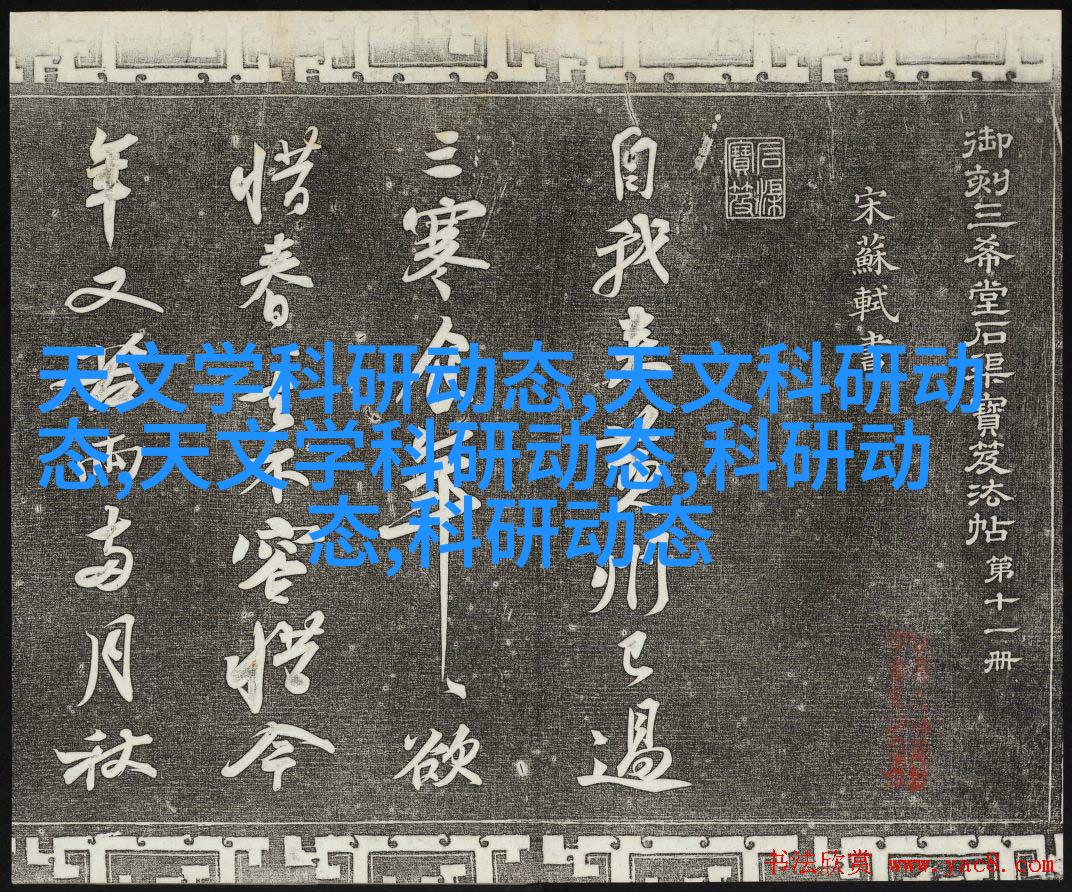 御刻三希堂石渠寶笈法帖 第十一冊
宋蘇軾書
石渠寶笈
自我来黄州已過
三寒食年、欲
惜春、去不容惜今
年又苦雨兩月秋
天文学科研动态,天文科研动
态,天文学科研动态,科研动
态,科研动态
书法欣赏 www.yac8.com